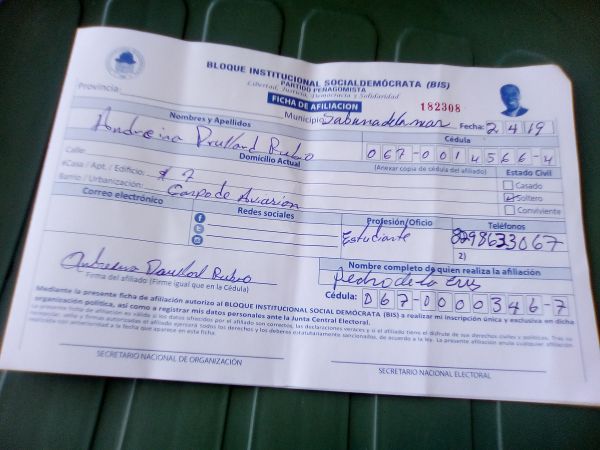 BLOQUE INSTITUCIONAL SOCIALDEMÓCRATA (BIS)
PARTIDO PEÑAGOMISTA
Libertad, Justicia, Democracia y Solidaridad
FICHA DE AFILIACION
182308
Provincia:
Municipio Sabana de la mar
Fecha: 2 4 19
Nombres y Apellidos
Cédula
Andreina Drullard Rubio
067-0014566-4
Domicilio Actual
(Anexar copia de cédula del afiliado)
Calle:
Estado Civil
#Casa / Apt. / Edificio. # 7
Casado
Barrio / Urbanización: Campo de Aviacion
Soltero
Conviviente
Correo electrónico
Redes sociales
Profesión/Oficio
Teléfonos
Estudiante
8298633067
2)
Andreina Drullard Rubio
Firma del afiliado (Firme igual que en la Cédula)
Nombre completo de quien realiza la afiliación
Pedro de la Cruz
Cédula: 067-0000346-7
Mediante la presente ficha de afiliación autorizo al BLOQUE INSTITUCIONAL SOCIAL DEMÓCRATA (BIS) a realizar mi inscripción única y exclusiva en dicha
organización política, así como a registrar mis datos personales ante la Junta Central Electoral.
SECRETARIO NACIONAL DE ORGANIZACIÓN
SECRETARIO NACIONAL ELECTORAL